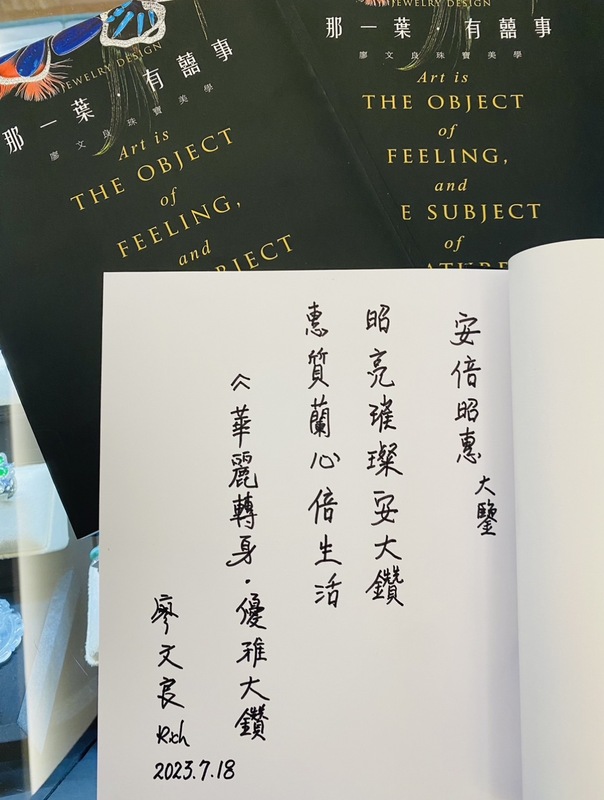 JEWELRY DESIGN
那一葉・有囍事
廖文良珠寶美學
Art is
THE OBJECT
of
FEELING,
and
BJECT
JEWELRY DESIGN
那一葉・有囍事
廖文良珠寶美學
Art is
THE OBJECT
of
FEELING,
and
E SUBJECT
of
安倍昭惠 大鑒
昭亮璀璨安大鑽
惠質蘭心倍生活
華麗轉身・優雅大鑽
廖文良 Rich
2023.7.18